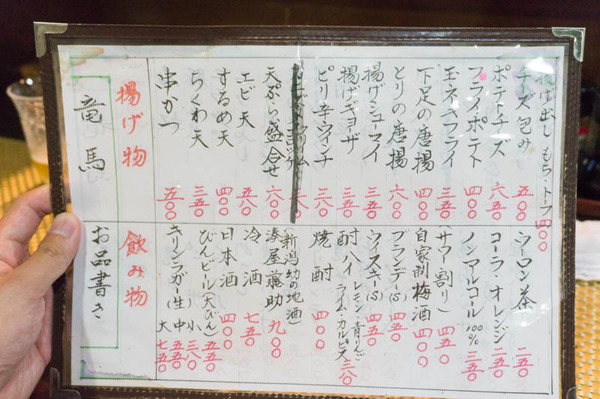 竜馬
お品書き
揚げ物
串かつ 五五〇
ちくわ天 三五〇
するめ天 四〇〇
エビ天 五八〇
天ぷら盛合せ 六〇〇
ピリ辛ウインナ 三八〇
揚げギョーザ 三五〇
揚げシューマイ 三五〇
とりの唐揚 六〇〇
下足の唐揚 四〇〇
玉ネギフライ 三五〇
フライポテト 四〇〇
ポテトチーズ 六五〇
チーズ包み 五〇〇
揚げ出しもちトーフ
飲み物
キリンラガー(生) 大 七五〇
中 五五〇
小 三八〇
びんビール(大びん) 五五〇
日本酒 四〇〇
冷酒 七五〇
湊屋藤助 九〇〇
(新潟の地酒)
焼酎 四〇〇
酎ハイ レモン・青りんご
ライム・カルピス 三八〇
ウイスキー(S) 四五〇
ブランデー(S) 四五〇
自家制梅酒 四〇〇
サワー割り 四五〇
ノンアルコール 100% 三五〇
コーラ・オレンジ 二五〇
ウーロン茶 二五〇